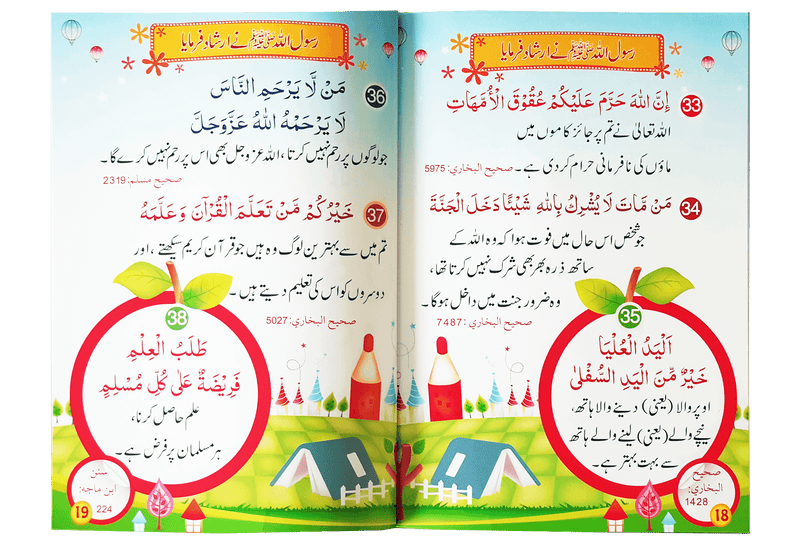 رسول اللہ ﷺ نے ارشاد فرمایا
33
إِنَّ اللّٰهَ حَرَّمَ عَلَيْكُمْ عُقُوْقَ الْأُمَّهَاتِ
اللہ تعالیٰ نے تم پر جائز کاموں میں
ماؤں کی نافرمانی حرام کردی ہے۔ صحيح البخاري: 5975
34
مَنْ مَّاتَ لَا يُشْرِكُ بِاللّٰهِ شَيْئًا دَخَلَ الْجَنَّةَ
جو شخص اس حال میں فوت ہوا کہ وہ اللہ کے
ساتھ ذرہ بھر بھی شرک نہیں کرتا تھا،
وہ ضرور جنت میں داخل ہوگا۔
صحيح البخاري: 7487
35
اَلْيَدُ الْعُلْيَا
خَيْرٌ مِّنَ الْيَدِ السُّفْلٰى
اوپر والا (یعنی) دینے والا ہاتھ،
نیچے والے (یعنی) لینے والے ہاتھ
سے بہت بہتر ہے۔
صحيح
البخاري:
1428
18
رسول اللہ ﷺ نے ارشاد فرمایا
36
مَنْ لَّا يَرْحَمِ النَّاسَ
لَا يَرْحَمْهُ اللّٰهُ عَزَّوَجَلَّ
جو لوگوں پر رحم نہیں کرتا، اللہ عزوجل بھی اس پر رحم نہیں کرے گا۔
صحيح مسلم: 2319
37
خَيْرُكُمْ مَّنْ تَعَلَّمَ الْقُرْآنَ وَعَلَّمَهُ
تم میں سے بہترین لوگ وہ ہیں جو قرآن کریم سیکھتے، اور
دوسروں کو اس کی تعلیم دیتے ہیں۔
صحيح البخاري: 5027
38
طَلَبُ الْعِلْمِ
فَرِيْضَةٌ عَلٰى كُلِّ مُسْلِمٍ
علم حاصل کرنا،
ہر مسلمان پر فرض ہے۔
سنن
ابن ماجه:
224
19